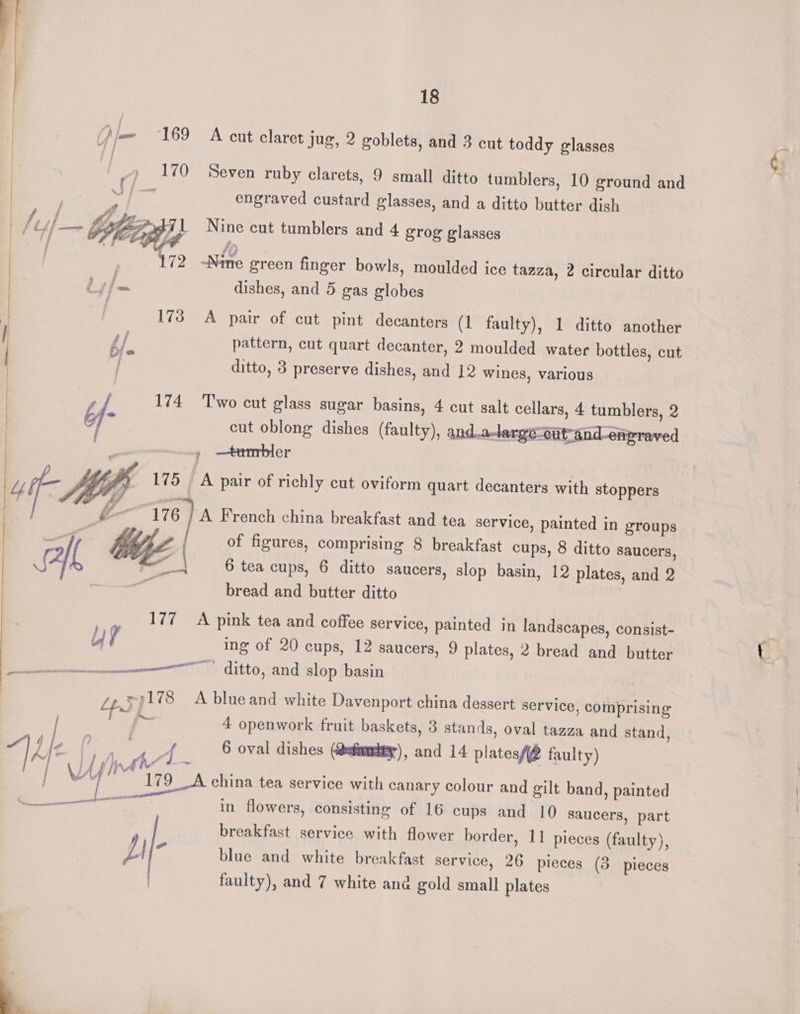 18
169 A cut claret jug, 2 goblets, and 3 cut toddy glasses
170 Seven ruby clarets, 9 small ditto tumblers, 10 ground and
engraved custard glasses, and a ditto butter dish
171 Nine cut tumblers and 4 grog glasses
172 Nine green finger bowls, moulded ice tazza, 2 circular ditto
dishes, and 5 gas globes
173 A pair of cut pint decanters (1 faulty), 1 ditto another
pattern, cut quart decanter, 2 moulded water bottles, cut
ditto, 3 preserve dishes, and 12 wines, various
174 Two cut glass sugar basins, 4 cut salt cellars, 4 tumblers, 2
cut oblong dishes (faulty), and a large cut and engraved
tumbler
175 A pair of richly cut oviform quart decanters with stoppers
176 A French china breakfast and tea service, painted in groups
of figures, comprising 8 breakfast cups, 8 ditto saucers,
6 tea cups, 6 ditto saucers, slop basin, 12 plates, and 2
bread and butter ditto
177 A pink tea and coffee service, painted in landscapes, consist-
ing of 20 cups, 12 saucers, 9 plates, 2 bread and butter
ditto, and slop basin
178 A blue and white Davenport china dessert service, comprising
4 openwork fruit baskets, 3 stands, oval tazza and stand,
6 oval dishes and 14 plates faulty)
179 A china tea service with canary colour and gilt band, painted
in flowers, consisting of 16 cups and 10 saucers, part
breakfast service with flower border, 11 pieces (faulty),
blue and white breakfast service, 26 pieces (3 pieces
faulty), and 7 white and gold small plates